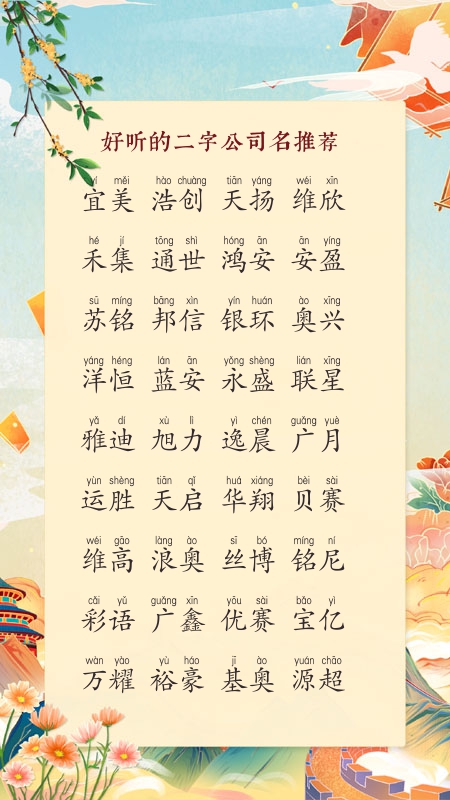 好听的二字公司名推荐
yí měi hào chuàng tiān yáng wéi xīn
宜美 浩创 天扬 维欣
hé jí tōng shì hóng ān ān yíng
禾集 通世 鸿安 安盈
sū míng bāng xìn yín huán ào xīng
苏铭 邦信 银环 奥兴
yáng héng lán ān yǒng shèng lián xīng
洋恒 蓝安 永盛 联星
yǎ dí xù lì yì chén guǎng yuè
雅迪 旭力 逸晨 广月
yùn shèng tiān qǐ huá xiáng bèi sài
运胜 天启 华翔 贝赛
wéi gāo làng ào sī bó míng ní
维高 浪奥 丝博 铭尼
cǎi yǔ guǎng xīn yōu sài bǎo yì
彩语 广鑫 优赛 宝亿
wàn yào yù háo jī ào yuán chāo
万耀 裕豪 基奥 源超